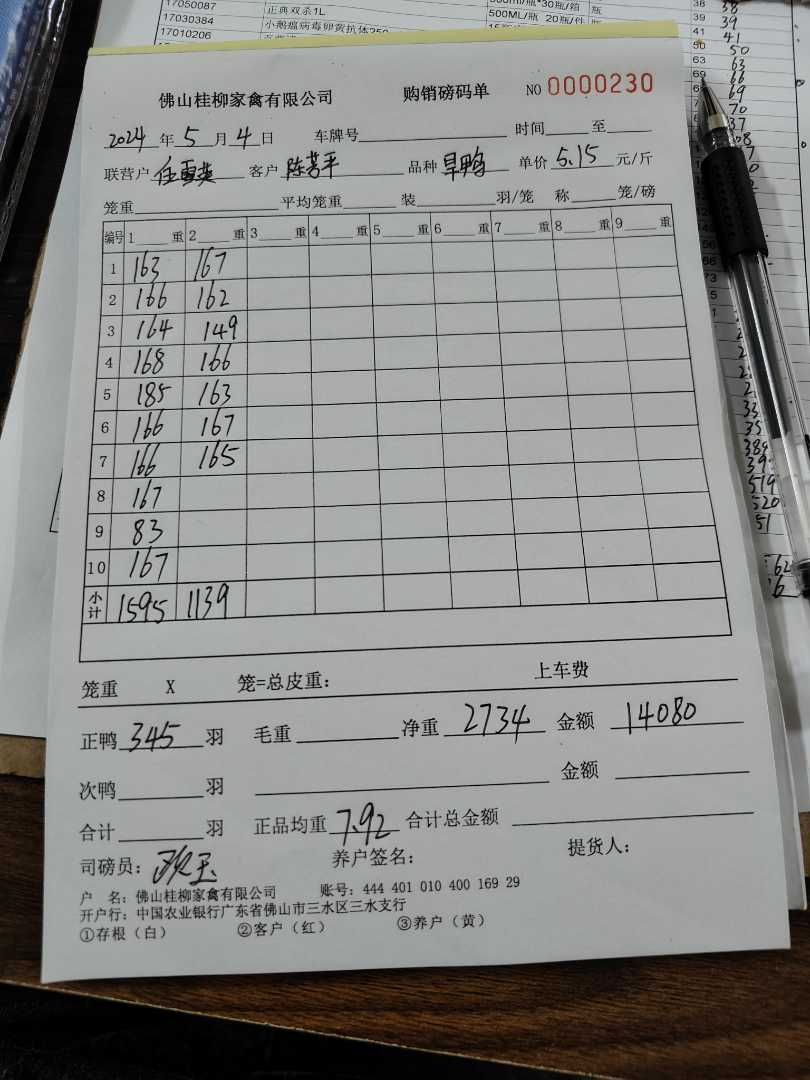 17050087 正典双杀1L 500ml/瓶*30瓶/箱 瓶 38 38
17030384 小鹅瘟病毒卵黄抗体250 500ML/瓶 20瓶/件 瓶 39 39
17010206 41 41
50 50
63 63
69 66
69
70
佛山桂柳家禽有限公司 购销磅码单 NO 0000230
2024 年 5 月 4 日 车牌号 时间 至
联营户 任雪英 客户 陈芳平 品种 旱鸭 单价 5.15 元/斤
笼重 平均笼重 装 羽/笼 称 笼/磅
编号 1 重 2 重 3 重 4 重 5 重 6 重 7 重 8 重 9 重
1 163 167
2 166 162
3 164 149
4 168 166
5 185 163
6 166 167
7 166 165
8 167
9 83
10 167
小计 1595 1139
笼重 X 笼=总皮重: 上车费
正鸭 345 羽 毛重 净重 2734 金额 14080
次鸭 羽 金额
合计 羽 正品均重 7.92 合计总金额
司磅员: 养户签名: 提货人:
户 名: 佛山桂柳家禽有限公司 账号: 444 401 010 400 169 29
开户行: 中国农业银行广东省佛山市三水区三水支行
①存根（白） ②客户（红） ③养户（黄）
519
520